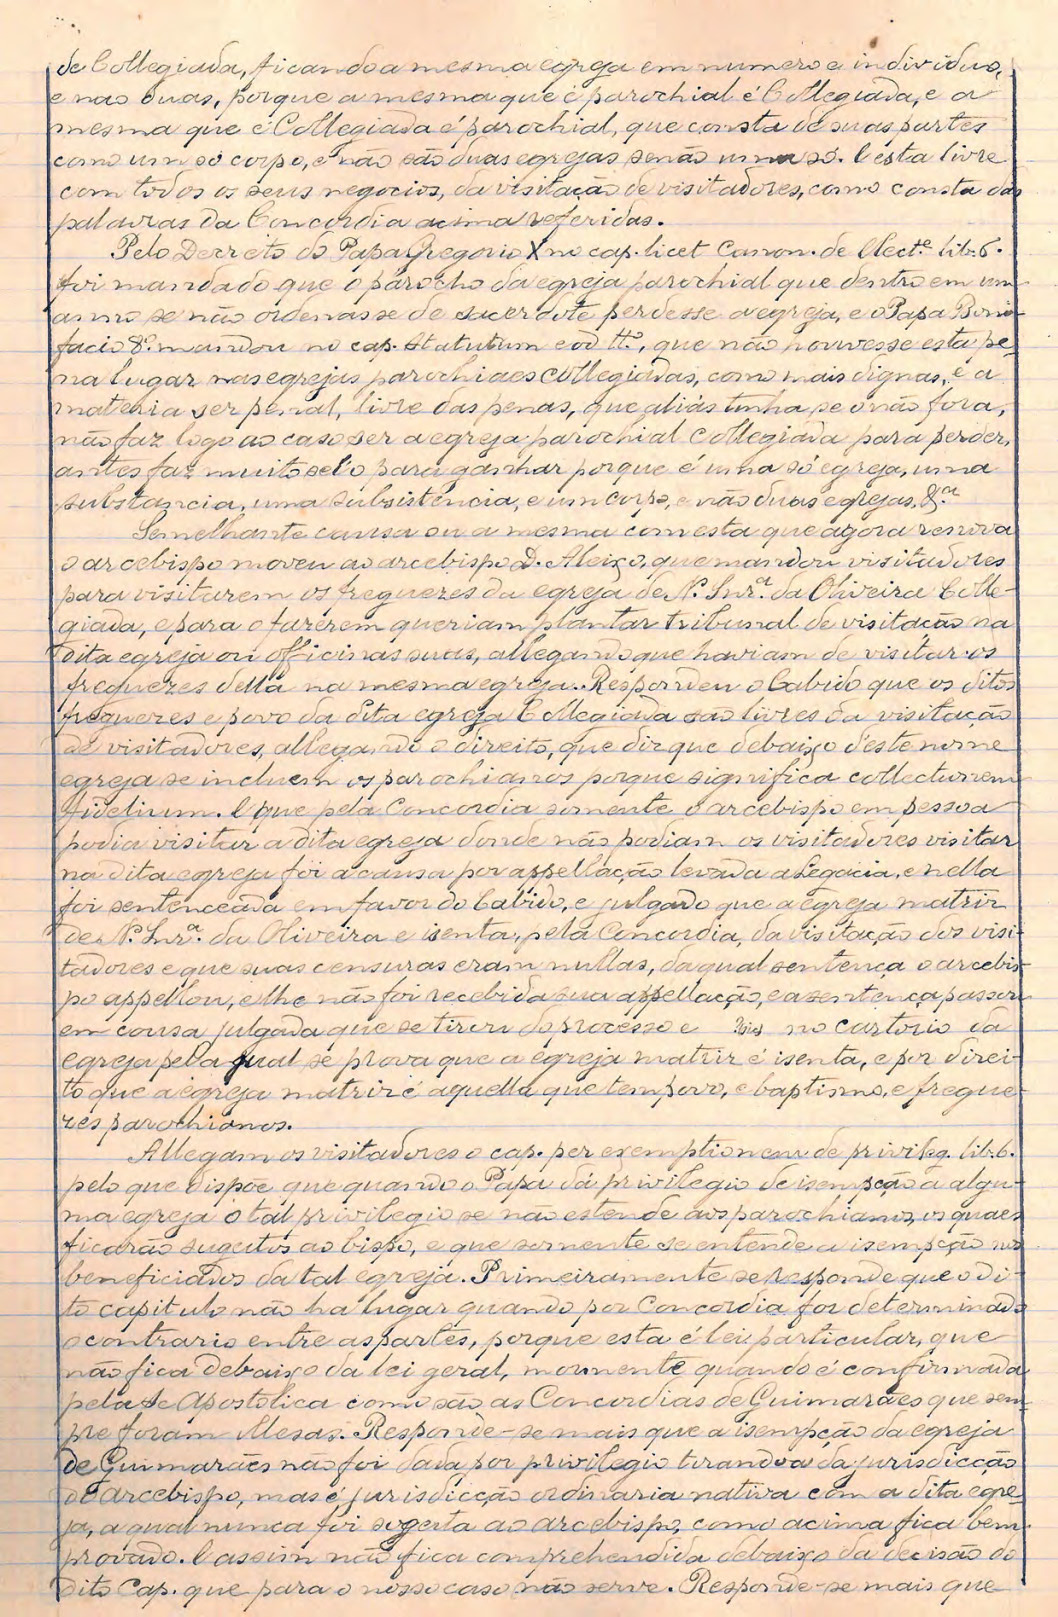 de Collegiada, ficando a mesma egreja em numero e individuo,
e nao duas, porque a mesma que é parochial é Collegiada, e a
mesma que é Collegiada é parochial, que consta de suas partes
como um só corpo, e não são duas egrejas senão uma só. E esta livre
com todos os seus negocios, da visitação de visitadores, como consta das
palavras da Concordia acima referidas.
Pelo Decreto do Papa Gregorio X no cap. licet Canon. de Elect.e lib. 6.
foi mandado que o parocho da egreja parochial que dentro em um
anno se não ordenasse de sacerdote perdesse a egreja, e o Papa Boni-
facio 8.º mandou no cap. Statutum eod tt.º, que não houvesse esta pe-
na lugar nas egrejas parochiaes Collegiadas, como mais dignas, e a
materia ser penal, livre das penas, que aliás tinha se o não fora,
não faz logo ao caso ser a egreja parochial Collegiada para perder,
antes faz muito sel'o para ganhar porque é uma só egreja, uma
substancia, uma subsistencia, e um corpo, e não duas egrejas. &.ª
Semelhante causa ou a mesma com esta que agora renova
o arcebispo moveu ao arcebispo D. Aleixo, que mandou visitadores
para visitarem os freguezes da egreja de N. Snr.ª da Oliveira Colle-
giada, e para o fazerem queriam plantar tribunal de visitação na
dita egreja ou officinas suas, allegando que haviam de visitar os
freguezes della na mesma egreja. Respondeu o Cabido que os ditos
freguezes e povo da dita egreja Collegiada são livres da visitação
de visitadores, allegando o direito, que diz que debaixo d'este nome
egreja se incluem os parochianos porque significa collectunem
fidelium. E que pela Concordia somente o arcebispo em pessoa
podia visitar a dita egreja donde não podiam os visitadores visitar
na dita egreja foi a causa por appellação levada a Legacia, e nella
foi sentenceada em favor do Cabido, e julgado que a egreja matriz
de N. Snr.ª da Oliveira e isenta, pela Concordia, da visitação dos visi-
tadores e que suas censuras eram nullas, da qual sentença o arcebis-
po appellou, e lhe não foi recebida sua appellação, e a sentença passou
em cousa julgada que se tirou do processo e no cartorio da
egreja pela qual se prova que a egreja matriz é isenta, e por direi-
to que a egreja matriz é aquella que tem povo, e baptismo, e fregue-
zes parochianos.
Allegam os visitadores o cap. per exemptionem de privileg. lib. 6.
pelo que dispoe que quando o Papa dá privilegio de isempção a algu-
ma egreja o tal privilegio se não estende aos parochianos, os quaes
ficarão sugeitos ao bispo, e que somente se entende a isempção nos
beneficiados da tal egreja. Primeiramente se responde que o di-
to capitulo não ha lugar quando por Concordia for determinado
o contrario entre as partes, porque esta é lei particular, que
não fica debaixo da lei geral, mormente quando é confirmada
pela Se Apostolica como são as Concordias de Guimarães que sem-
pre foram illesas. Responde-se mais que a isempção da egreja
de Guimarães não foi dada por privilegio tirando-a da jurisdicção
do arcebispo, mas é jurisdicção ordinaria nativa com a dita egre-
ja, a qual nunca foi sogeita ao arcebispo, como acima fica bem
provado. E assim não fica comprehendida debaixo da decisão do
dito Cap. que para o nosso caso não serve. Responde-se mais que